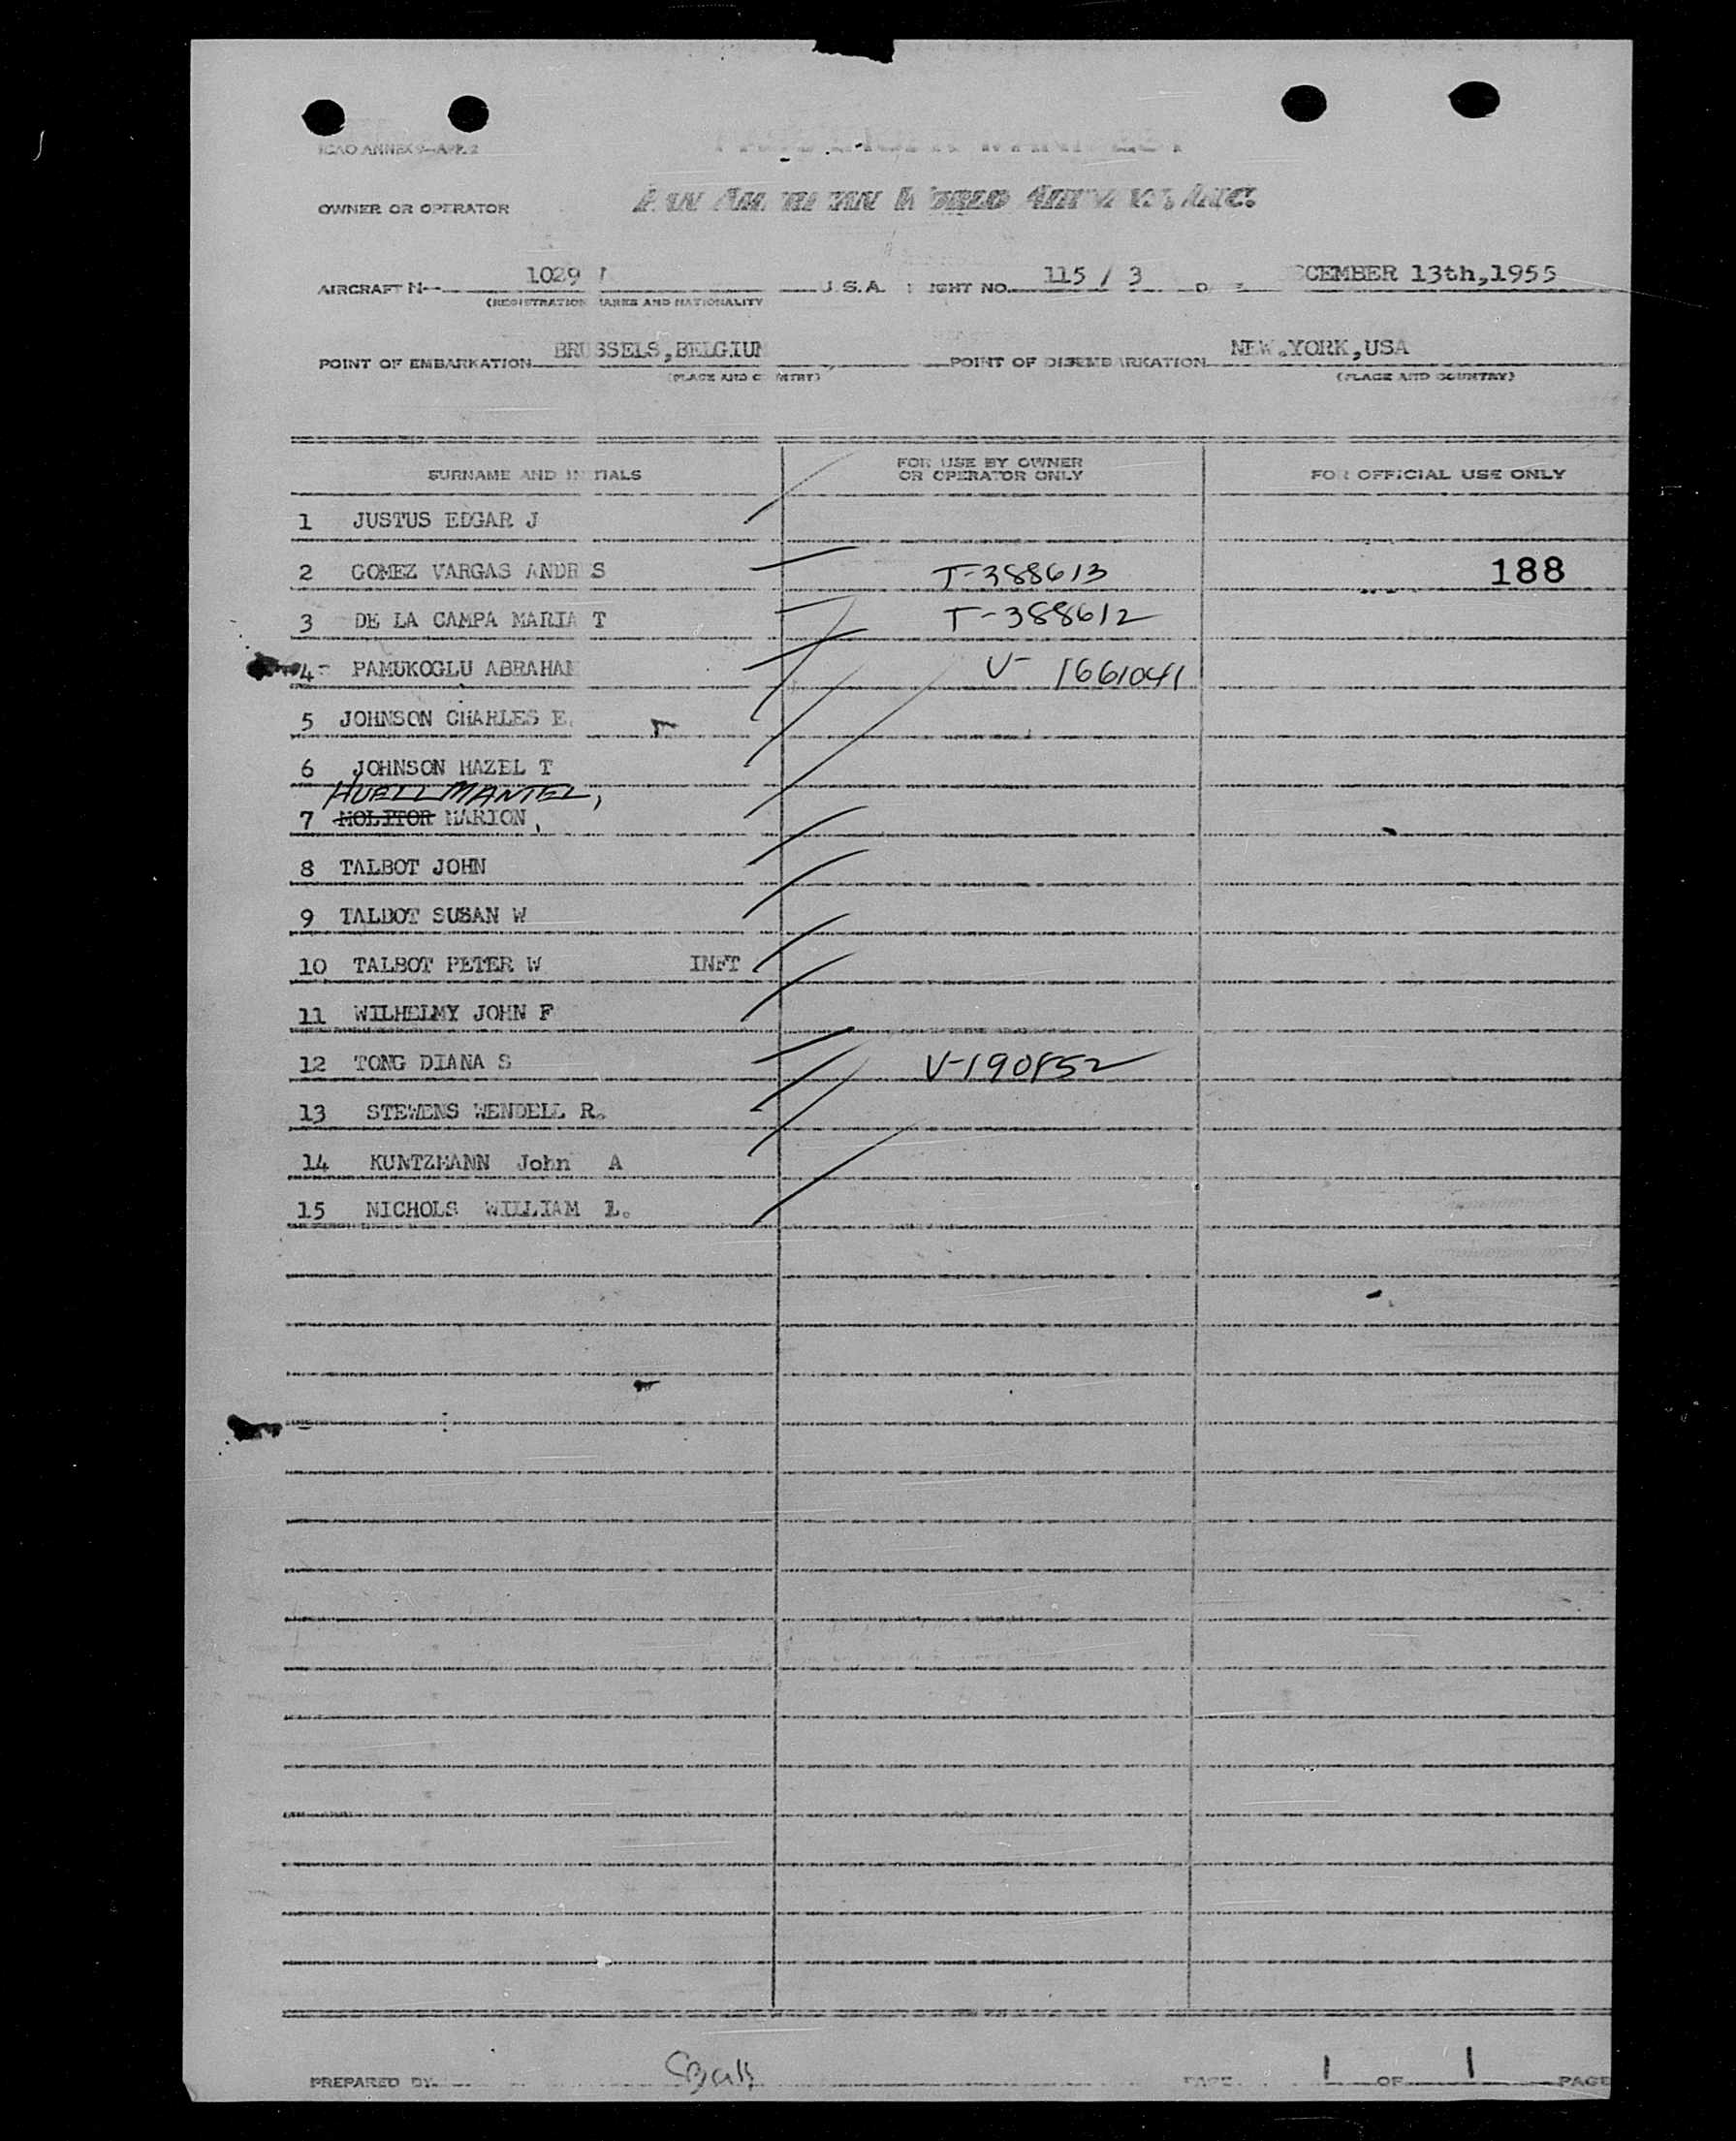 ICAO ANNEX 9—APP. 2
OWNER OR OPERATOR
AIRCRAFT N 1029 U.S.A. FLIGHT NO. 115 / 3 DECEMBER 13th,1955
(REGISTRATION MARKS AND NATIONALITY
POINT OF EMBARKATION BRUSSELS,BELGIUM POINT OF DISEMBARKATION NEW.YORK,USA
(PLACE AND COUNTRY) (PLACE AND COUNTRY)
SURNAME AND INITIALS FOR USE BY OWNER OR OPERATOR ONLY FOR OFFICIAL USE ONLY
1 JUSTUS EDGAR J
2 GOMEZ VARGAS ANDR S T-388613 188
3 DE LA CAMPA MARIA T T-388612
4 PAMUKOGLU ABRAHAM V- 1661041
5 JOHNSON CHARLES E.
6 JOHNSON HAZEL T
HUELLMANTEL,
7 MOLITOR MARION,
8 TALBOT JOHN
9 TALBOT SUSAN W
10 TALBOT PETER W INFT
11 WILHELMY JOHN F
12 TONG DIANA S V-190852
13 STEWENS WENDELL R.
14 KUNTZMANN John A
15 NICHOLS WILLIAM L.
PREPARED BY PAGE 1 OF 1 PAGE